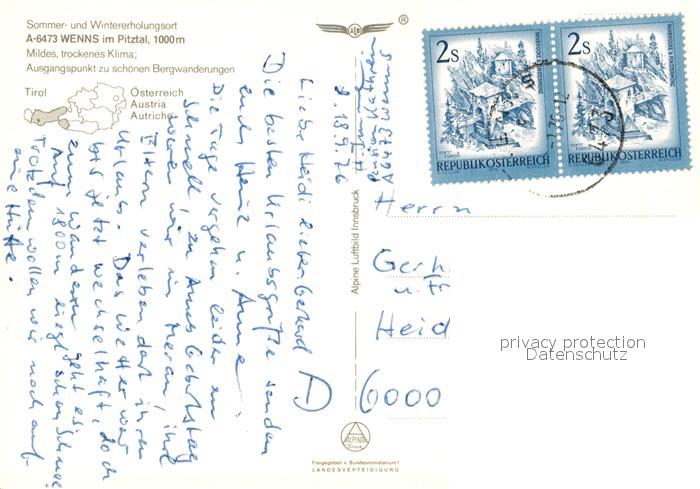 Sommer- und Wintererholungsort
A-6473 WENNS im Pitztal, 1000m
Mildes, trockenes Klima;
Ausgangspunkt zu schönen Bergwanderungen
Tirol
Österreich
Austria
Autriche
®
Pension Kathrein
A 6473 Wenns
d. 18.9.76
Liebe Heidi lieber Gerhard
Die besten Urlaubsgrüße senden
euch Heinz u. Anne.
Die Tage vergehen leider zu
schnell, zu Annes Geburtstag
waren wir in Meran, ihre
Eltern verleben dort ihren
Urlaub. Das Wetter war
bis jetzt wechselhaft, doch
zum wandern geht es.
Auf 1800m liegt schon Schnee
Trotzdem wollen wir noch auf
eine Hütte.
Alpine Luftbild Innsbruck
2S
REPUBLIK ÖSTERREICH
2S
REPUBLIK ÖSTERREICH
6473
Herrn
Gerh
u.
Heid
D 6000
privacy protection
Datenschutz
ALPINE
Freigegeben v. Bundesministerium f.
LANDESVERTEIDIGUNG